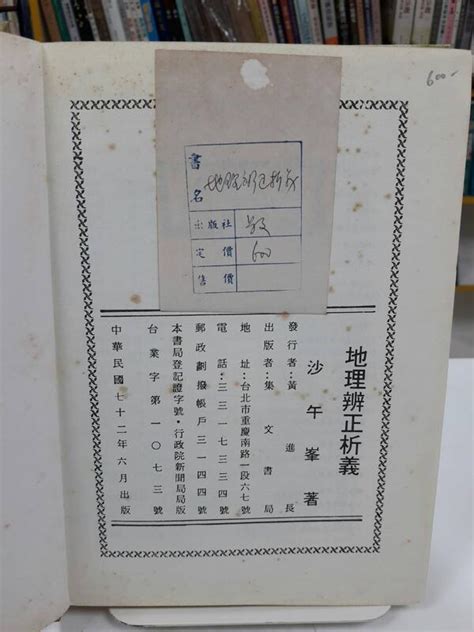 600-
書名 地理辨正析義
出版社
定價 600
售價
地理辨正析義
沙午峯著
發行者：黃進長
出版者：集文書局
地址：台北市重慶南路一段六七號
電話：三三一七三三四號
郵政劃撥帳戶三一四四號
本書局登記證字號・行政院新聞局局版
台業字第一〇七三號
中華民國七十二年六月出版